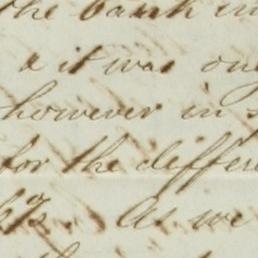 the bank in
& it was on
however in
for the differ
As we
the